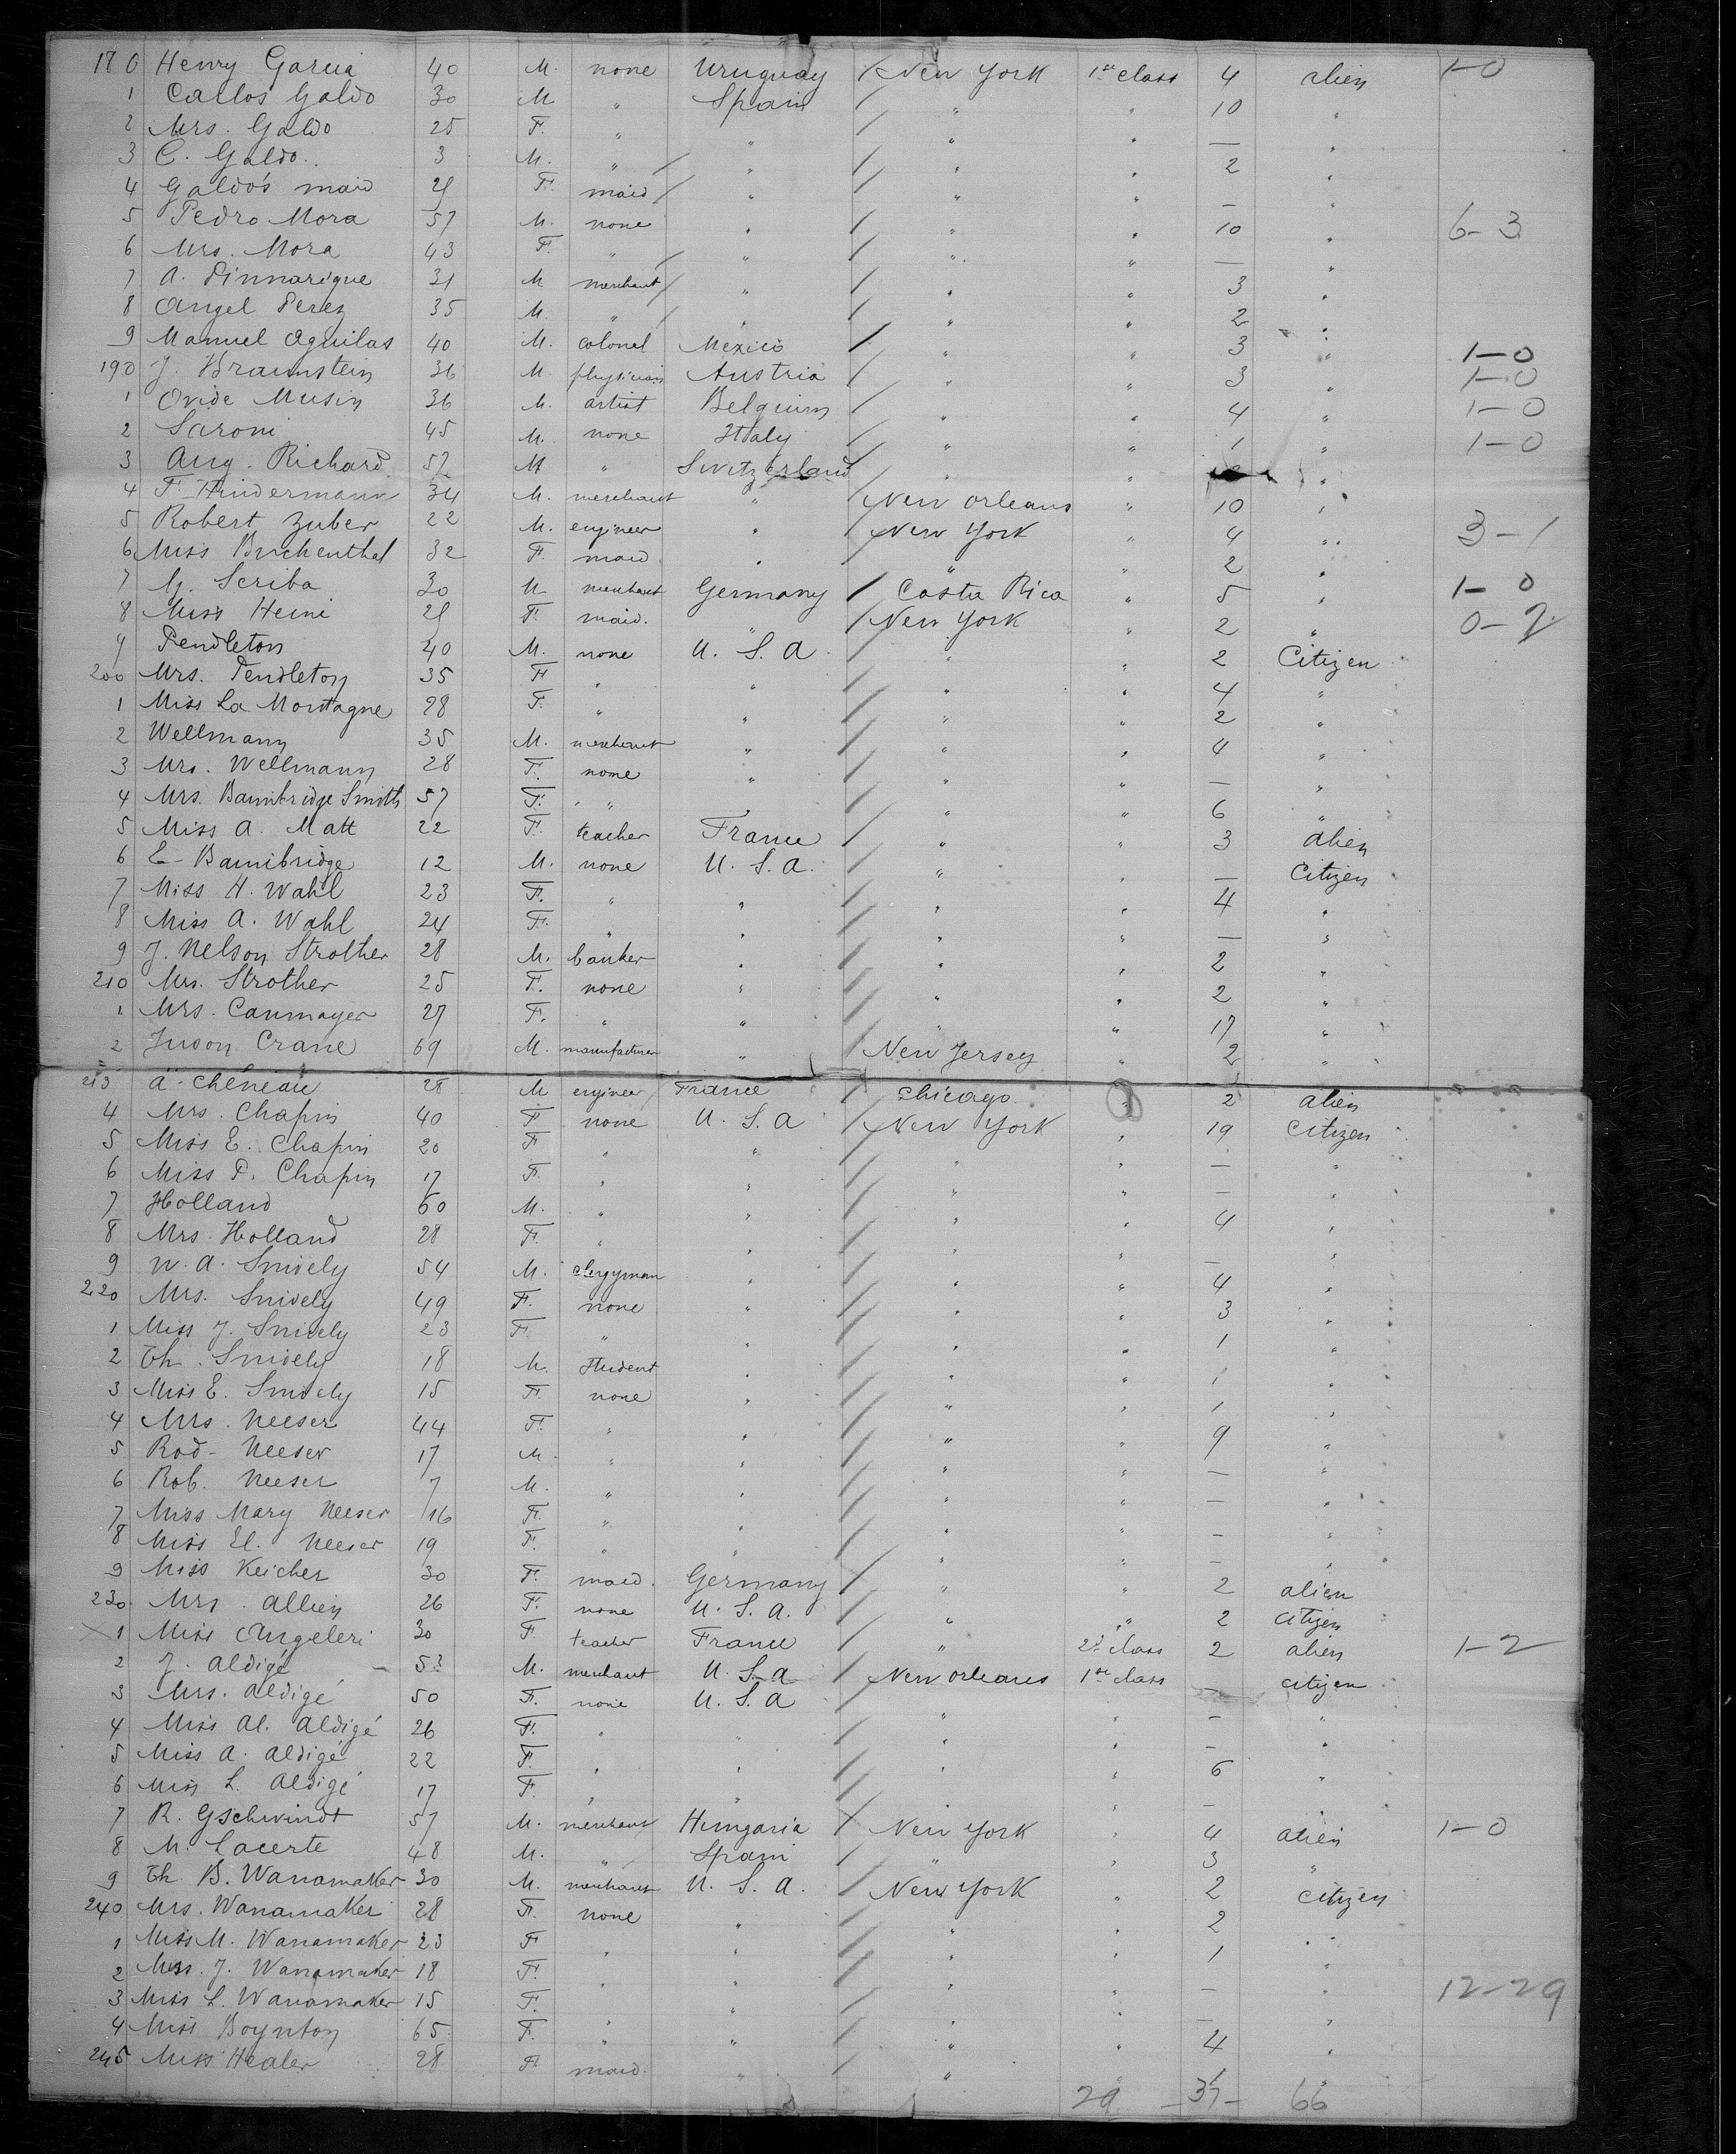 180 Henry Garcia 40 M. none Uruguay / New York 1st class 4 alien 1-0
1 Carlos Galdo 30 M " Spain / " " 10 "
2 Mrs. Galdo 25 F. " " / " " — "
3 C. Galdo 3 M. " " / " " 2 "
4 Galdo's maid 29 F. maid " / " " — "
5 Pedro Mora 57 M. none " / " " 10 " 6-3
6 Mrs. Mora 43 F. " " / " " — "
7 A. 31 M merchant " / " " 3 "
8 Angel Perez 35 M. " " / " " 2 "
9 Manuel Aguilas 40 M. colonel Mexico / " " 3 " 1-0
190 J. Braunstein 36 M. physician Austria / " " 3 " 1-0
1 Ovide Musin 36 M. artist Belgium / " " 4 " 1-0
2 Saroni 45 M. none Italy / " " 1 " 1-0
3 Aug. Richard 52 M " Switzerland / " " "
4 F. Hindermann 34 M. merchant " / New Orleans " 10 "
5 Robert Zuber 22 M. engineer " / New York " 4 " 3-1
6 Miss Buchenthal 32 F. maid " / " " 2 "
7 Scriba 30 M merchant Germany / Costa Rica " 5 " 1-0
8 Miss Heini 29 F. maid. " / New York " 2 " 0-2
9 Pendleton 40 M. none U. S. A. / " " 2 Citizen
200 Mrs. Pendleton 35 F " " / " " 4 "
1 Miss La Montagne 28 F. " " / " " 2 "
2 Wellmann 35 M. merchant " / " " 4 "
3 Mrs. Wellmann 28 F. none " / " " — "
4 Mrs. Bambridge Smith 57 F. " " / " " 6 "
5 Miss A. Matt 22 F. teacher France / " " 3 alien
6 E. Bambridge 12 M. none U. S. A. / " " — Citizen
7 Miss H. Wahl 23 F. " " / " " 4 "
8 Miss A. Wahl 24 F. " " / " " — "
9 J. Nelson Strother 28 M. banker " / " " 2 "
210 Mrs. Strother 25 F. none " / " " 2 "
1 Mrs. Canmayer 27 F. " " / " " 17 "
2 Judon Crane 69 M. manufacturer " / New Jersey " 2 "
213 A. Chéneau 28 M engineer France / Chicago " 2 alien
4 Mrs. Chapin 40 F none U. S. A / New York " 19 Citizen
5 Miss E. Chapin 20 F " " / " " — "
6 Miss P. Chapin 17 F. " " / " " — "
7 Holland 60 M. " " / " " 4 "
8 Mrs. Holland 28 F. " " / " " — "
9 W. A. Snively 54 M. clergyman " / " " 4 "
220 Mrs. Snively 49 F. none " / " " 3 "
1 Miss J. Snively 23 F. " " / " " 1 "
2 Th. Snively 18 M. student " / " " 1 "
3 Miss E. Snively 15 F. none " / " " 1 "
4 Mrs. Neeser 44 F. " " / " " 9 "
5 Rod. Neeser 17 M. " " / " " — "
6 Rob. Neeser 7 M. " " / " " — "
7 Miss Mary Neeser 16 F. " " / " " — "
8 Miss El. Neeser 19 F. " " / " " — "
9 Miss Keicher 30 F. maid. Germany / " " 2 alien
230 Mrs. Allien 26 F. none U. S. A. / " " 2 citizen
1 Miss Angeleri 30 F. teacher France / " 2d class 2 alien 1-2
2 J. Aldigé 53 M. merchant U. S. A / New Orleans 1st class — citizen
3 Mrs. Aldigé 50 F. none U. S. A / " " — "
4 Miss Al. Aldigé 26 F. " " / " " — "
5 Miss A. Aldigé 22 F. " " / " " 6 "
6 Miss L. Aldigé 17 F. " " / " " — "
7 R. Gschwindt 57 M. merchant Hungaria / New York " 4 alien 1-0
8 M. Lacerte 48 M. " Spain / " " 3 "
9 Th. B. Wanamaker 30 M. merchant U. S. A. / New York " 2 citizen
240 Mrs. Wanamaker 28 F. none " / " " 2 "
1 Miss M. Wanamaker 23 F " " / " " 1 "
2 Miss J. Wanamaker 18 F. " " / " " — "
3 Miss L. Wanamaker 15 F. " " / " " — " 12-29
4 Miss Boynton 65 F. " " / " " 4 "
245 Miss Healer 28 F maid. " / " " 1 "
29 -37- 66